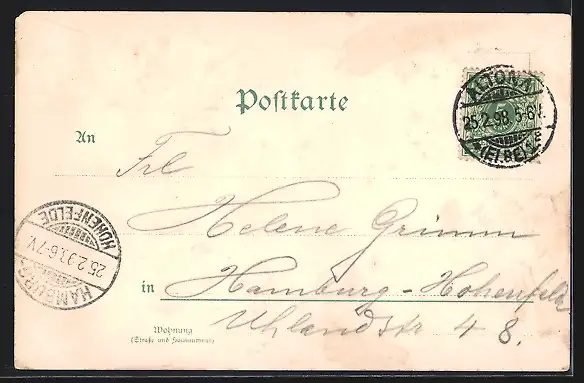 Postkarte
ALTONA
25.2.98.5-6V.
An
Frl
Helene Grimm
HAMBURG
25.2.98.6-7V.
HOHENFELDE
in Hamburg-Hohenfelde
Uhlandstr 48.
Wohnung
(Straße und Hausnummer)